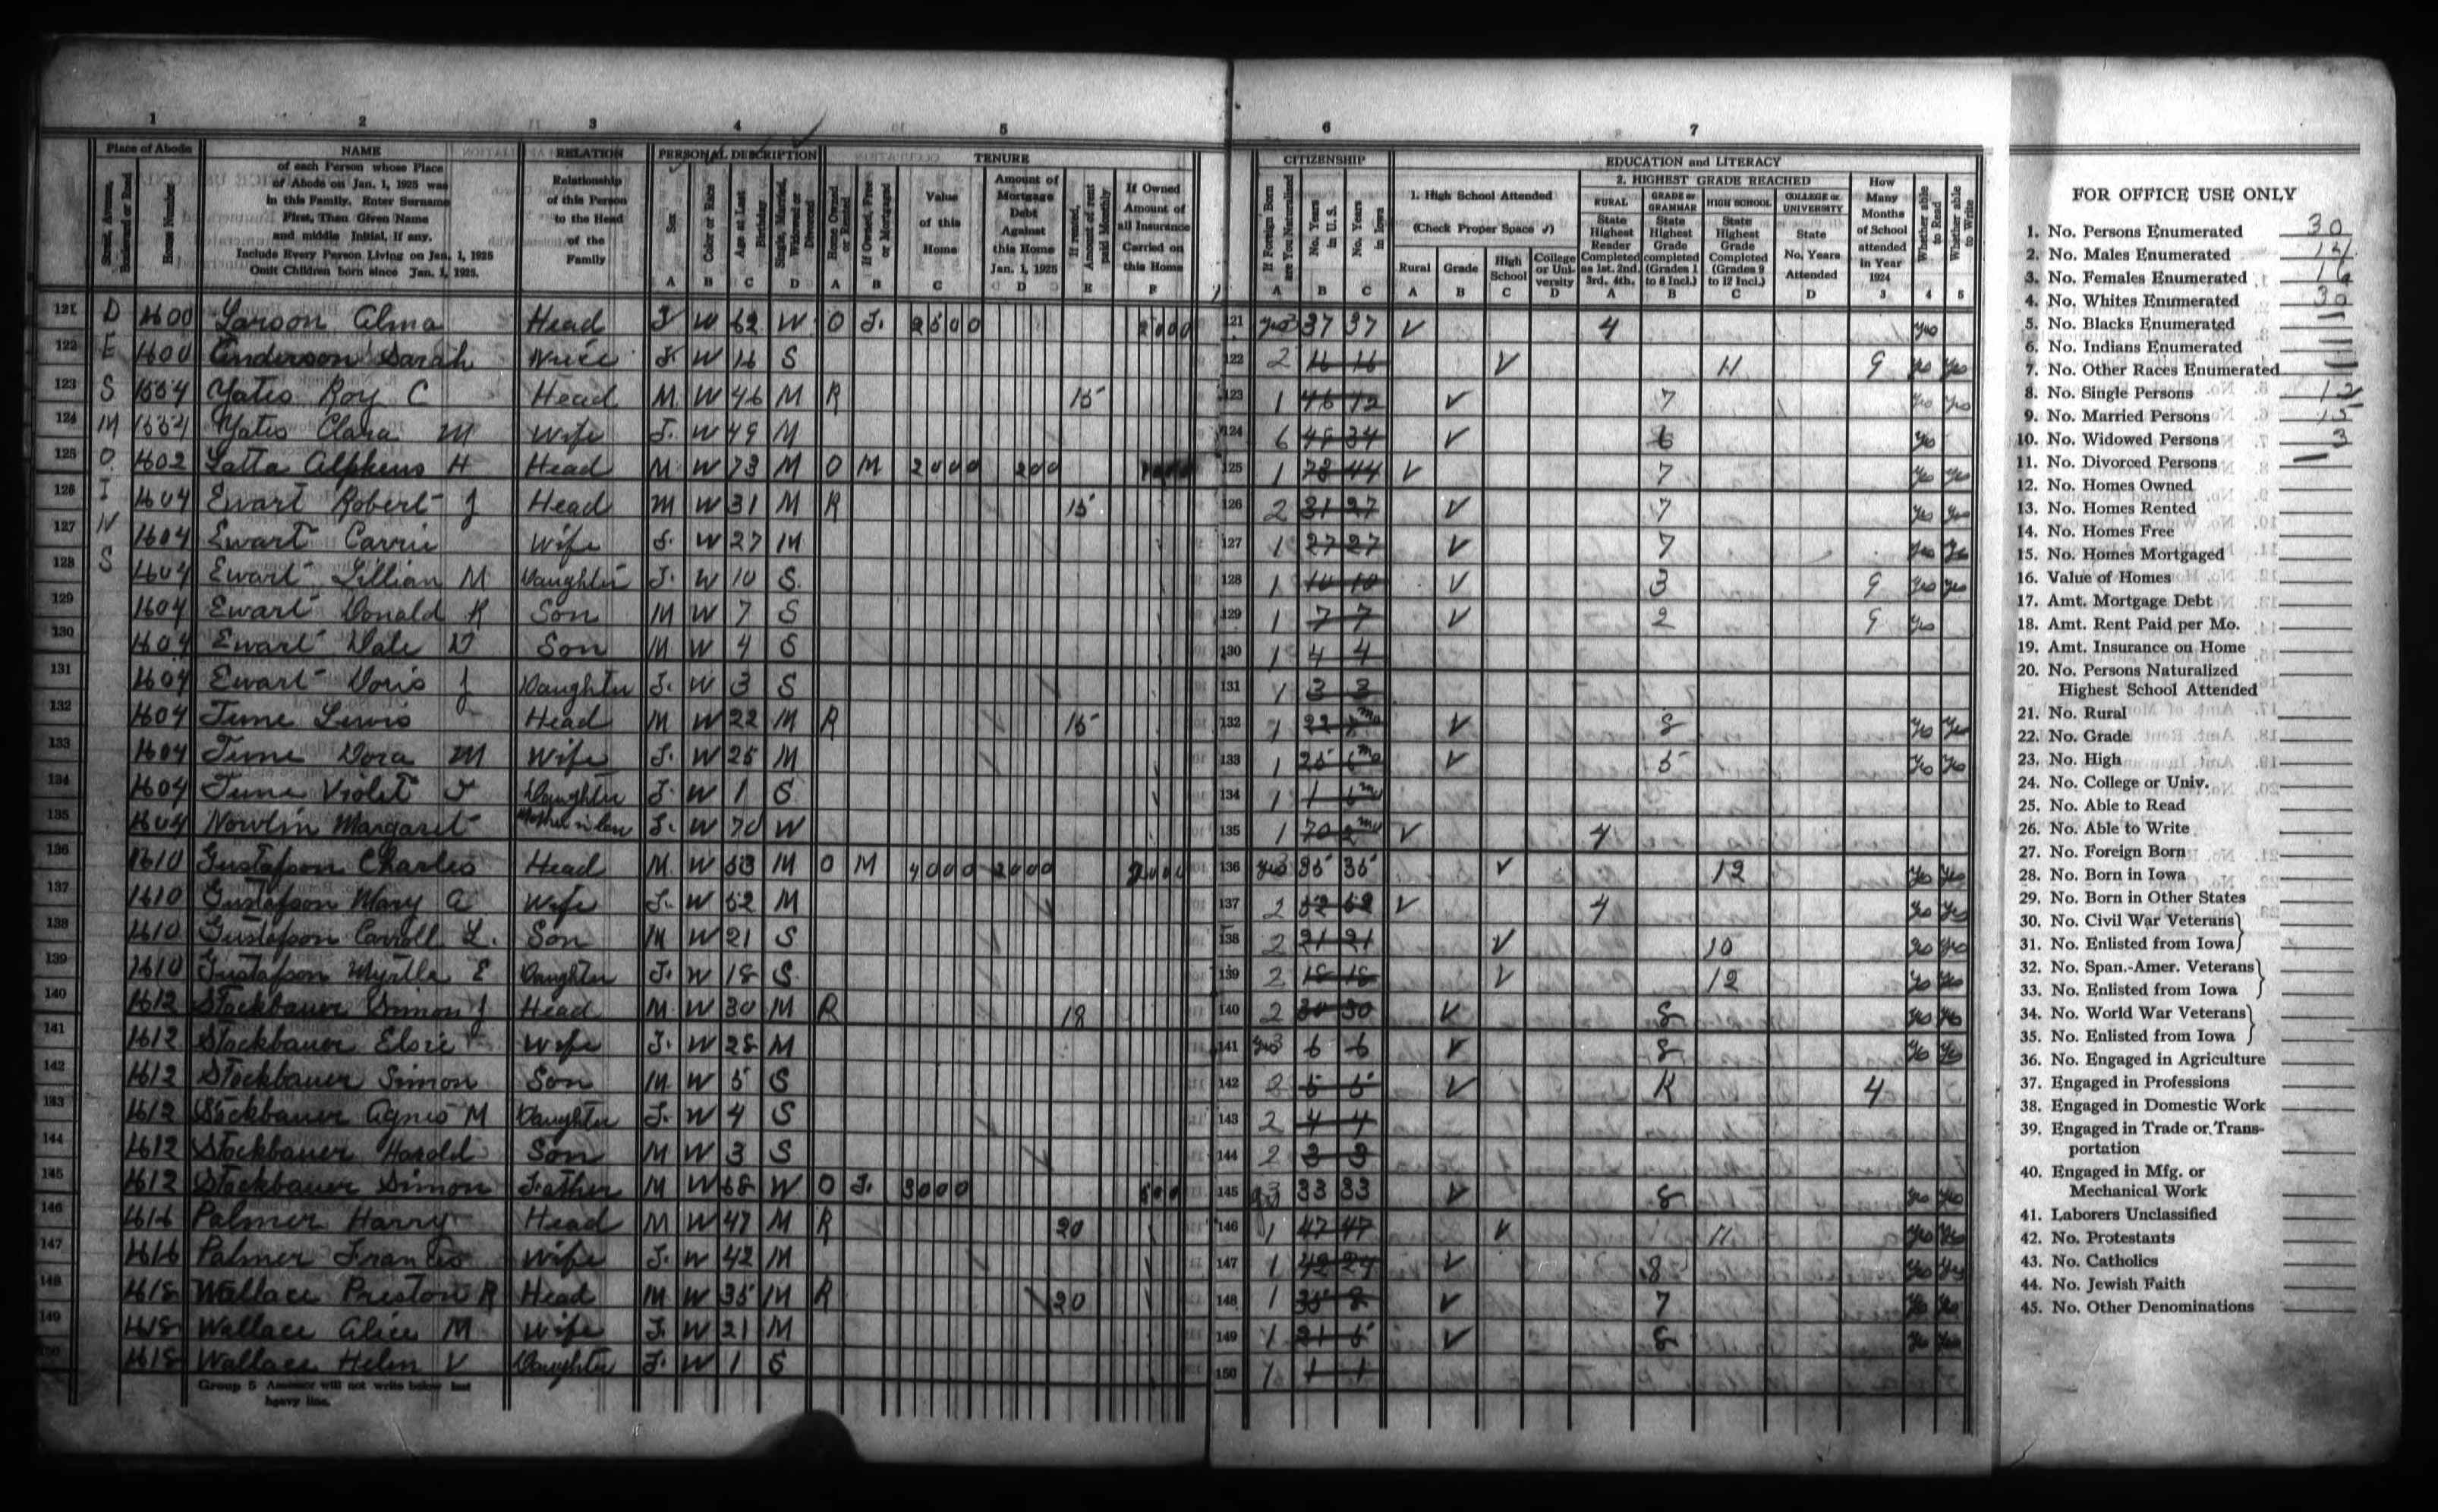 1 2 3 4 5 6 7
Place of Abode
Street, Avenue, Boulevard or Road
House Number
NAME
of each Person whose Place
of Abode on Jan. 1, 1925 was
in this Family. Enter Surname
First, Then Given Name
and middle Initial, If any.
Include Every Person Living on Jan. 1, 1925
Omit Children born since Jan. 1, 1925.
RELATION
Relationship
of this Person
to the Head
of the
Family
PERSONAL DESCRIPTION
Sex
A
Color or Race
B
Age at Last Birthday
C
Single, Married, Widowed or Divorced
D
TENURE
Home Owned or Rented
A
If Owned, Free or Mortgaged
B
Value
of this
Home
C
Amount of
Mortgage
Debt
Against
this Home
Jan. 1, 1925
D
If rented, Amount of rent paid Monthly
E
If Owned
Amount of
all Insurance
Carried on
this Home
F
CITIZENSHIP
If Foreign Born are You Naturalized
A
No. Years in U. S.
B
No. Years in Iowa
C
EDUCATION and LITERACY
1. High School Attended
(Check Proper Space √)
Rural
A
Grade
B
High
School
C
College
or Uni-
versity
D
2. HIGHEST GRADE REACHED
RURAL
State
Highest
Reader
Completed
as 1st. 2nd.
3rd. 4th.
A
GRADE or
GRAMMAR
State
Highest
Grade
completed
(Grades 1
to 8 Incl.)
B
HIGH SCHOOL
State
Highest
Grade
Completed
(Grades 9
to 12 Incl.)
C
COLLEGE or
UNIVERSITY
State
No. Years
Attended
D
How
Many
Months
of School
attended
in Year
1924
3
Whether able to Read
4
Whether able to Write
5
121 D 1600 Larson Alma Head F W 62 W O F. 2500 2000 121 yes 37 37 V 4 yes
122 E 1600 Anderson Sarah Niece F. W 16 S 122 2 16 16 V 11 9 yes yes
123 S 1554 Yates Roy C Head M W 46 M R 15 123 1 46 12 V 7 yes yes
124 M 1554 Yates Clara M Wife F. W 49 M 124 6 34 V 6 yes
125 O 1602 Latta Alpheus H Head M W 73 M O M 2000 200 125 1 73 44 V 7 yes yes
126 I 1604 Ewart Robert J Head M W 31 M R 15 126 2 31 27 V 7 yes yes
127 N 1604 Ewart Carrie Wife F. W 27 M 127 1 27 27 V 7 yes yes
128 S 1604 Ewart Lillian M Daughter F. W 10 S. 128 1 10 10 V 3 9 yes yes
129 1604 Ewart Donald R Son M W 7 S 129 1 7 7 V 2 9 yes
130 1604 Ewart Dale D Son M W 4 S 130 1 4 4
131 1604 Ewart Doris J Daughter F. W 3 S 131 1 3 3
132 1604 Tune Lewis Head M W 22 M R 15 132 1 22 mo V 8 yes yes
133 1604 Tune Dora M Wife F. W 25 M 133 1 25 6mo V 5 yes yes
134 1604 Tune Violet F Daughter F. W 1 S 134 1 1 6mo
135 1604 Nowlin Margaret Mother in law F. W 70 W 135 1 70 2mo V 4
136 1610 Gustafson Charles Head M W 53 M O M 4000 2000 136 yes 35 35 V 12 yes yes
137 1610 Gustafson Mary A Wife F. W 52 M 137 2 52 52 V 4 yes yes
138 1610 Gustafson Carroll L. Son M W 21 S 138 2 21 21 V 10 yes yes
139 1610 Gustafson Myrtle E Daughter F. W 18 S. 139 2 18 18 V 12 yes yes
140 1612 Stockbauer Simon J Head M W 30 M R 18 140 2 30 30 V 8 yes yes
141 1612 Stockbauer Elsie Wife F. W 28 M 141 yes 6 6 V 8 yes yes
142 1612 Stockbauer Simon Son M W 5 S 142 2 5 5 V K 4
143 1612 Stockbauer Agnes M Daughter F. W 4 S 143 2 4 4
144 1612 Stockbauer Harold Son M W 3 S 144 2 3 3
145 1612 Stockbauer Simon Father M W 68 W O F. 3000 500 145 33 33 V 8 yes yes
146 1616 Palmer Harry Head M W 47 M R 20 146 1 47 47 V 11 yes yes
147 1616 Palmer Frances Wife F. W 42 M 147 1 42 24 V 8 yes yes
148 1618 Wallace Preston R Head M W 35 M R 20 148 1 35 8 V 7 yes yes
149 1618 Wallace Alice M Wife F. W 21 M 149 1 21 V 8 yes yes
150 1618 Wallace Helen V Daughter F. W 1 S 150 1 1 1
Group 5 Assessor will not write below last
heavy line.
FOR OFFICE USE ONLY
1. No. Persons Enumerated 30
2. No. Males Enumerated 14
3. No. Females Enumerated 16
4. No. Whites Enumerated 30
5. No. Blacks Enumerated
6. No. Indians Enumerated
7. No. Other Races Enumerated
8. No. Single Persons 12
9. No. Married Persons 15
10. No. Widowed Persons 3
11. No. Divorced Persons
12. No. Homes Owned
13. No. Homes Rented
14. No. Homes Free
15. No. Homes Mortgaged
16. Value of Homes
17. Amt. Mortgage Debt
18. Amt. Rent Paid per Mo.
19. Amt. Insurance on Home
20. No. Persons Naturalized
Highest School Attended
21. No. Rural
22. No. Grade
23. No. High
24. No. College or Univ.
25. No. Able to Read
26. No. Able to Write
27. No. Foreign Born
28. No. Born in Iowa
29. No. Born in Other States
30. No. Civil War Veterans
31. No. Enlisted from Iowa
32. No. Span.-Amer. Veterans
33. No. Enlisted from Iowa
34. No. World War Veterans
35. No. Enlisted from Iowa
36. No. Engaged in Agriculture
37. Engaged in Professions
38. Engaged in Domestic Work
39. Engaged in Trade or Trans-
portation
40. Engaged in Mfg. or
Mechanical Work
41. Laborers Unclassified
42. No. Protestants
43. No. Catholics
44. No. Jewish Faith
45. No. Other Denominations